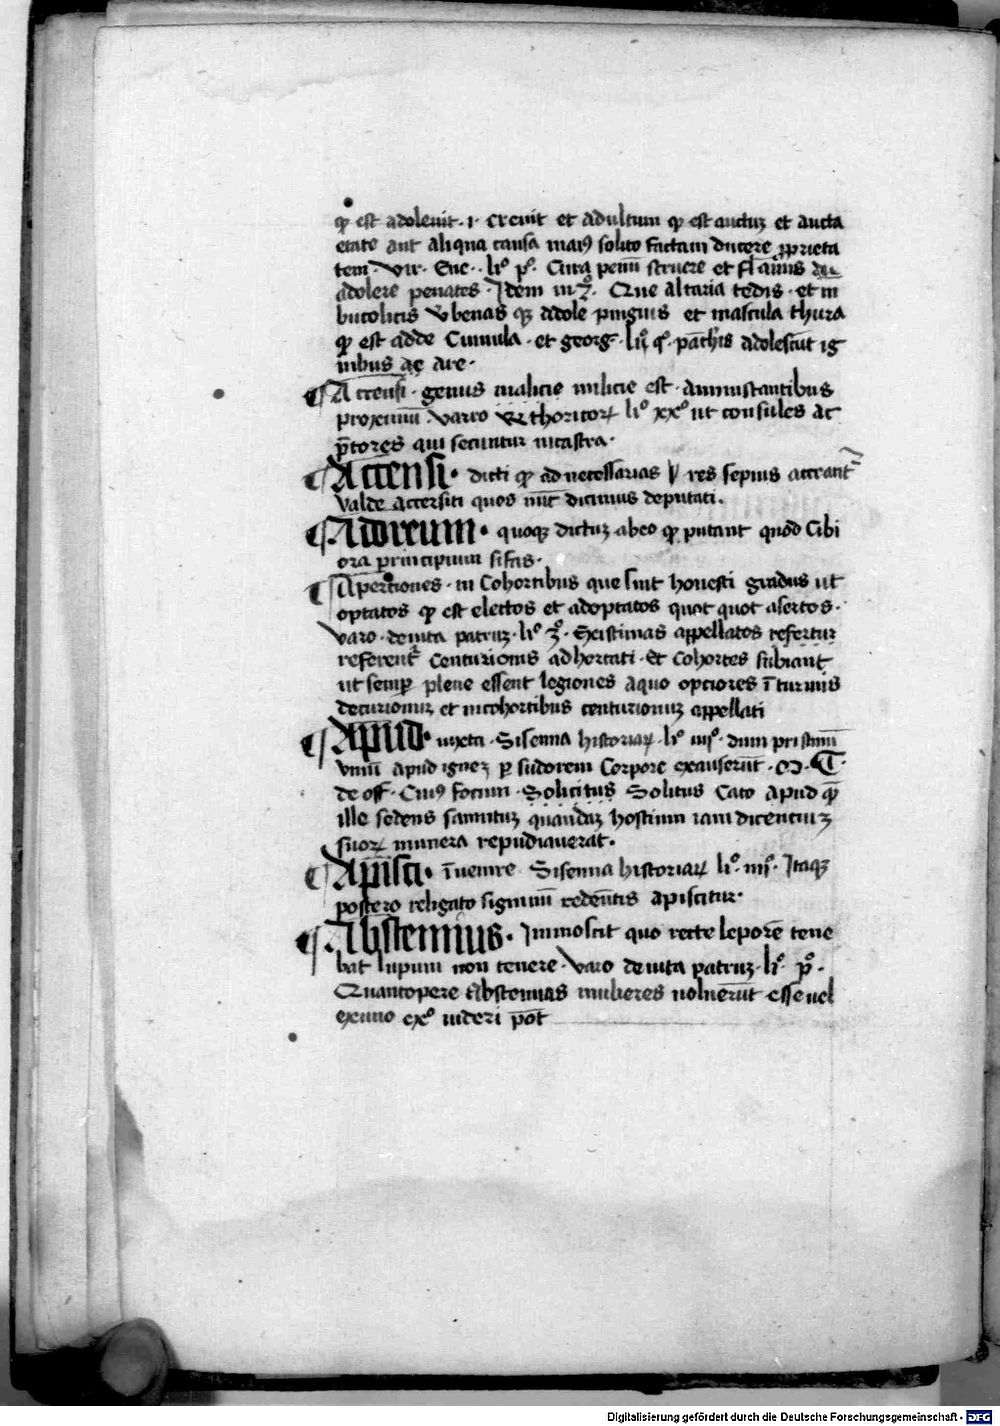 qp est adoleuit · i · creuit et adultum qp est auctuz et aucta
etate aut aliqua causa mai9 solito factam ducere pprieta
tem · Vir · Ene · li° p° · Cura penū struere et
adolere penates · Idem in z° · Que altaria tedis · et in
bucolicis Vbenas qz adole pinguis et mascula thura
qp est adde Cumula · et georg · adolescūt ig
nibus are ·
¶ Accensi · genus malicie milicie est · aministantibus
proximū · Varro li° xx° ut consules ac
p̄tores qui secuntur incastra ·
¶ Accensi · dicti qp ad necessarias res sepius accrant̄
Valde Accersiti quos nūc dicimus deputati .
¶ Adoreum · quoqz dictuz abeo qp putant quod Cibi
ora principium sifas ·
¶ Aperciones · in Cohortibus que sint honesti gradus ut
optatos qp est electos et adoptatos quot quot asertos ·
Varo · deuita patruz · li° z° · Seistimas appellatos refertur
referent̄ Centurionis adhortati · Et Cohortes subiant
ut semp plene essent legiones aquo opciores ī turmis
decurionuz et incohortibus centurionuz appellati
¶ Apud · iuxta · Sisenna historiaꝝ · li° iiij° · dum pristinū
Vnuū apud ignez p sudorem Corpore exauserūt · M · T ·
de off · Cui9 focum · Solicitus Solitus Cato apud qp
ille sedens samnituz quandaz hostium iam dicentiuz
suoꝝ munera repudiauerat ·
¶ Apisci · īuenire Sisenna historiaꝝ li° · iiij° · Itaqz
postero religato signum̄ redeūtis apiscitur ·
¶ Abstemius · Immoscit quo recte leporē tene
bat lupum non tenere · Varo deuita patruz · li° · p° ·
Quantopere Abstemias mulieres uoluerūt esse uel
exuno ex° uideri pōt
Digitalisierung gefördert durch die Deutsche Forschungsgemeinschaft - DFG